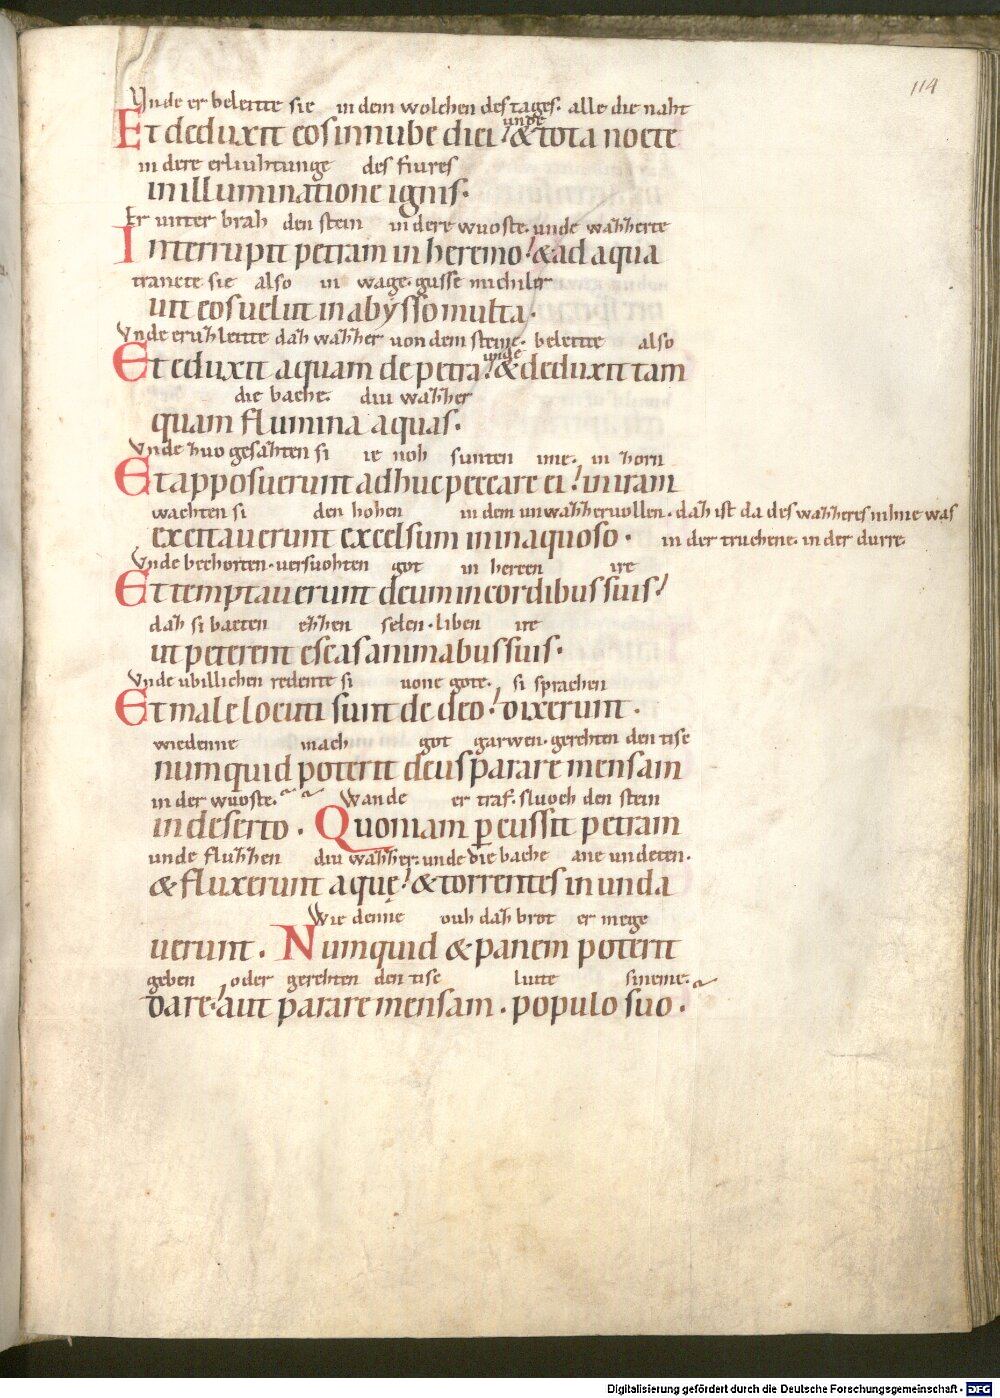 114
Vnde er beleitte sie in dem wolchen des tages. alle die naht
unde
Et deduxit eos in nube diei. & tota nocte
in dere erliuhtunge des fiures
in illuminatione ignis.
Er unter brah den stein in dere wuoste. unde wahherte
Interrupit petram in heremo. & adaqua
trancte sie also in wage. gusse micheler
uit eos uelut in abysso multa.
Vnde eruhleitte dah wahher uon dem steine. beleitte also
unde
Et eduxit aquam de petra. & deduxit tam
die bache. diu wahher
quam flumina aquas.
Vnde huo gesahten si ie noh sunten ime. in horn
Et apposuerunt adhuc peccare ei. in iram
wachten si den hohen in dem unwahheruollen. dah ist da des wahheres nihne was
excitauerunt excelsum in inaquoso. in der truchene. in der durre.
Vnde bechorten. uersuohten got in herten ire
Et temptauerunt deum in cordibus suis.
dah si baeten ehhen selen. liben ire
ut peterent escas animabus suis.
Vnde ubillichen redente si uone gote. si sprachen
Et male locuti sunt de deo. dixerunt.
wiedenne mach got garwen. gerehten den tise
numquid poterit deus parare mensam
in der wuoste. Wande er traf. sluoch den stein
in deserto. Quoniam pcussit petram
unde fluhhen diu wahher. unde die bache ane undeten.
& fluxerunt aquę. & torrentes inunda
Wie denne ouh dah brot er mege
uerunt. Numquid & panem poterit
geben oder gerehten den tise liute sineme.
dare. aut parare mensam. populo suo.
Digitalisierung gefördert durch die Deutsche Forschungsgemeinschaft - DFG